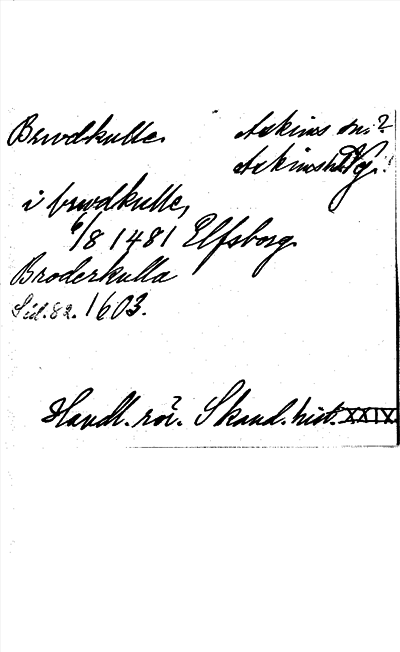 Brwdkulle Askims sn.?
Askimshd Vg.!
i brwdkulle,
6/8 1481 Elfsborg
Broderkulla
Sid. 82. 1603.
Handl. rör. Skand. hist. XXIX